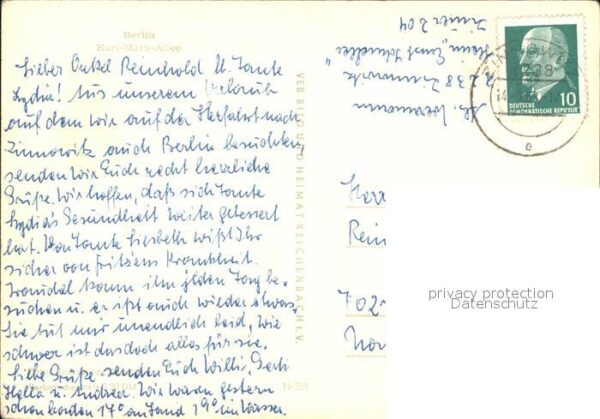 Berlin
Karl-Marx-Allee
Lieber Onkel Reinhold u. Tante
Lydia! Aus unserem Urlaub
auf dem wir auf der Herfahrt nach
Zinnowitz auch Berlin besuchten,
senden wir Euch recht herzliche
Grüße. Wir hoffen, daß sich Tante
Lydia's Gesundheit weiter gebessert
hat. Von Tante Liesbeth wißt Ihr
sicher von Fritzens Krankheit.
Traudel kann ihn jeden Tag be-
suchen u. er ißt auch wieder etwas.
Sie tut mir unendlich leid, wie
schwer ist das doch alles für sie.
Liebe Grüße senden Euch Willi,
Hella u. Andrea. Wir waren gestern
schon baden 17° an Land 19° im Wasser.
15 259
VEB BILD UND HEIMAT REICHENBACH I. V.
2238 Zinnowitz
Heim "Ernst
Zimmer 204
DEUTSCHE
DEMOKRATISCHE REPUBLIK
10
e
Herr
Rein
702
privacy protection
Datenschutz